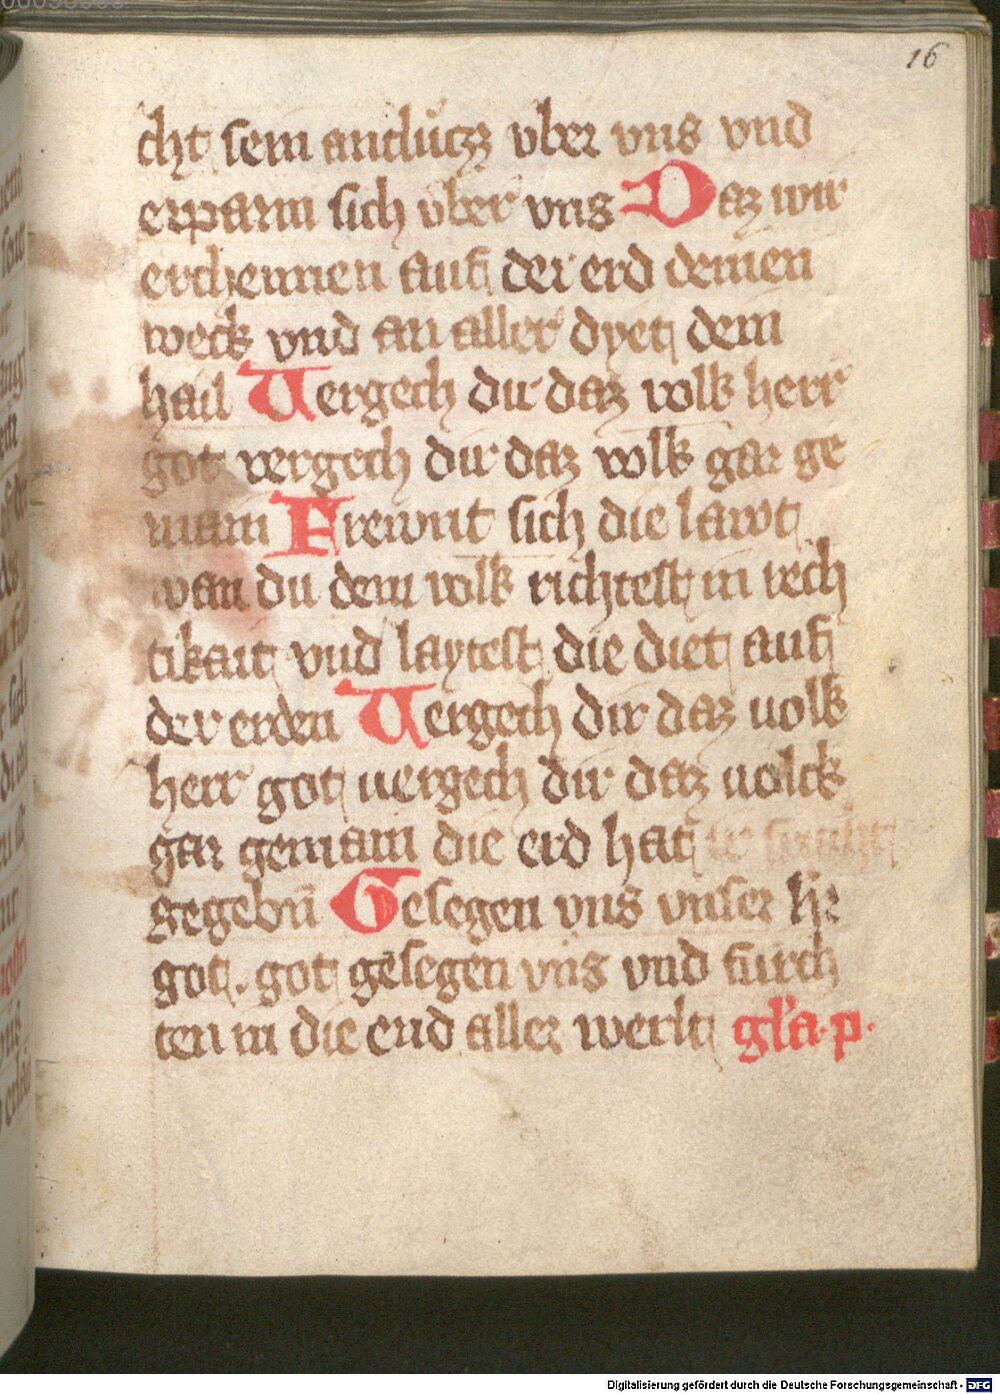 16
cht sein andlucz vber vns vnd
erparm sich vber vns Daz wir
erchennen auf der erd deinen
weck vnd an aller dyet dein
hail Uergech dir daz volk herr
got vergech dir daz volk gar ge
main Frewnt sich die lawt
wan du dem volk richtest in rech
tikait vnd laytest die diet auf
der erden Uergech dir daz uolk
herr got uergech dir daz uolck
gar gemain die erd hat ir frucht
gegebn̄ Gesegen vns vnser h̄r
got . got gesegen vns vnd furch
ten in die end aller werlt gl'a . p .
Digitalisierung gefördert durch die Deutsche Forschungsgemeinschaft - DFG